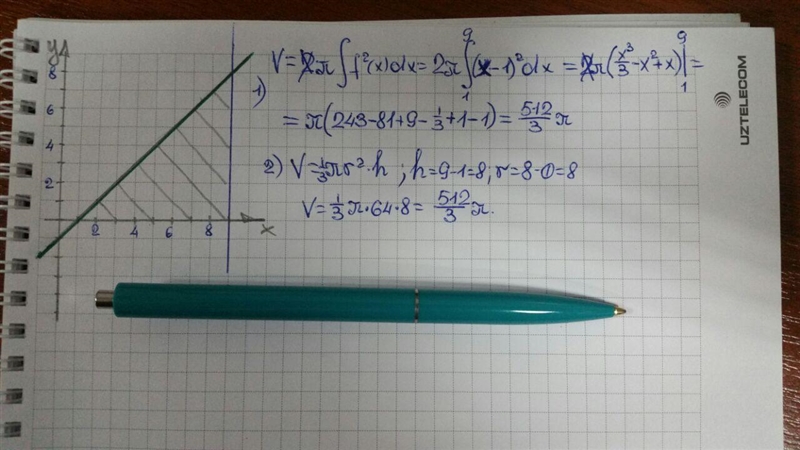 y
8
6
4
2
2 4 6 8 x
1) V = 2π∫f²(x)dx = 2π∫₁⁹(x-1)²dx = 2π(x³/3 - x² + x)|₁⁹ =
= π(243-81+9-1/3+1-1) = 512/3 π
2) V = 1/3 πr²·h ; h=9-1=8, r=8-0=8
V = 1/3 π·64·8 = 512/3 π.
UZTELECOM